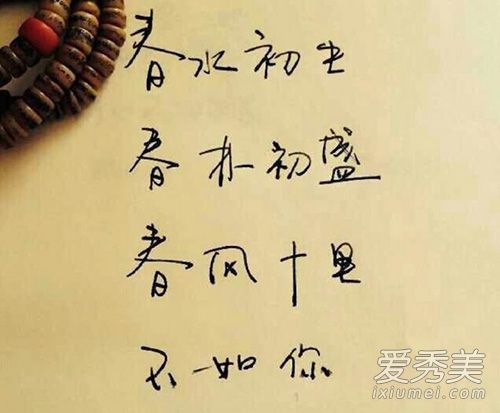 春水初生
春林初盛
春风十里
不如你
爱秀美
ixiumei.com